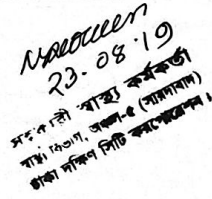 23.08.19
সহকারী স্বাস্থ্য কর্মকর্তা
স্বাস্থ্য বিভাগ, অঞ্চল-৫ (সায়দাবাদ)
ঢাকা দক্ষিণ সিটি করপোরেশন।